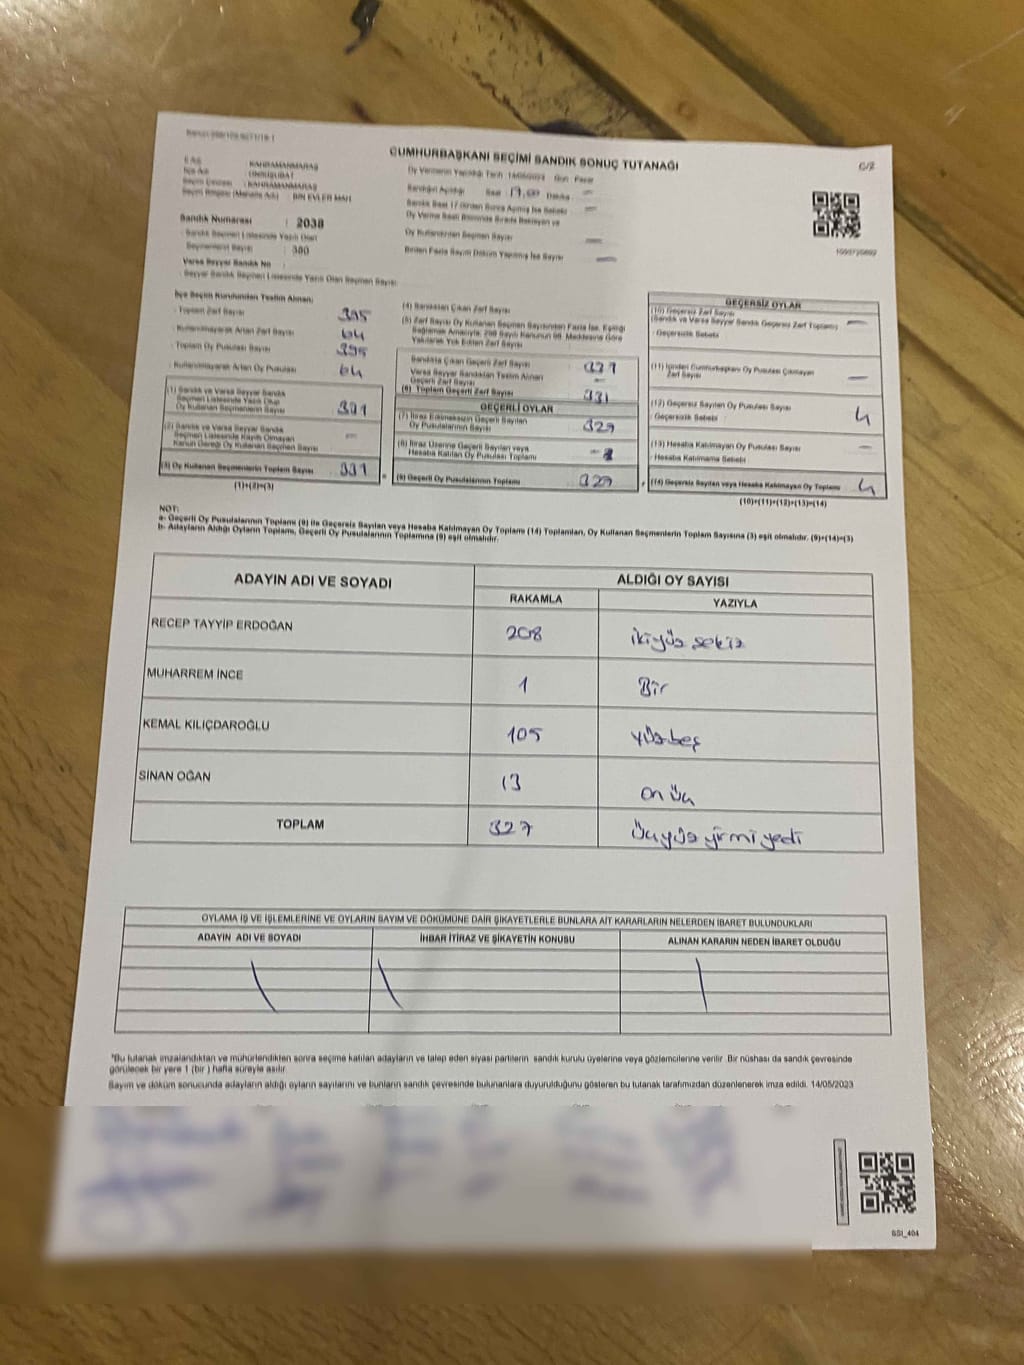 CUMHURBAŞKANI SEÇİMİ SANDIK SONUÇ TUTANAĞI
C/2
: KAHRAMANMARAŞ
: KAHRAMANMARAŞ
BİN EVLER MAH.
Sandık Numarası : 2038
Sandık Seçmen Listesinde Yazılı Olan
Seçmenlerin Sayısı : 380
Varsa Seyyar Sandık No
Seyyar Sandık Seçmen Listesinde Yazılı Olan Seçmen Sayısı
Oy Vermenin Yapıldığı Tarih : 14/05/2023 Gün : Pazar
Sandığın Açıldığı Saat 17.00 Dakika —
Oy Kullandırılan Seçmen Sayısı —
Birden Fazla Sayım Döküm Yapılmış İse Sayısı —
İlçe Seçim Kurulundan Teslim Alınan;
Toplam Zarf Sayısı 395
Kullanılmayarak Artan Zarf Sayısı 64
Toplam Oy Pusulası Sayısı 395
Kullanılmayarak Artan Oy Pusulası 64
(1) Sandık ve Varsa Seyyar Sandık
Seçmen Listesinde Yazılı Olup
Oy Kullanan Seçmenlerin Sayısı 331
(2) Sandık ve Varsa Seyyar Sandık
Seçmen Listesinde Kayıtlı Olmayan
Kanun Gereği Oy Kullanan Seçmen Sayısı —
(3) Oy Kullanan Seçmenlerin Toplam Sayısı 331
(1)+(2)=(3)
(4) Sandıktan Çıkan Zarf Sayısı
(5) Zarf Sayısı Oy Kullanan Seçmen Sayısından Fazla İse, Eşitliği
Sağlamak Amacıyla, 298 Sayılı Kanunun 98. Maddesine Göre
Yakılarak Yok Edilen Zarf Sayısı
Sandıkta Çıkan Geçerli Zarf Sayısı
Varsa Seyyar Sandıktan Teslim Alınan
Geçerli Zarf Sayısı —
(6) Toplam Geçerli Zarf Sayısı 331
GEÇERLİ OYLAR
(7) İtiraz Edilmeksizin Geçerli Sayılan
Oy Pusulalarının Sayısı 327
(8) İtiraz Üzerine Geçerli Sayılan veya
Hesaba Katılan Oy Pusulası Toplamı
(9) Geçerli Oy Pusulalarının Toplamı 327
GEÇERSİZ OYLAR
(10) Geçersiz Zarf Sayısı
(Sandık ve Varsa Seyyar Sandık Geçersiz Zarf Toplamı) —
Geçersizlik Sebebi :
(11) İçinden Cumhurbaşkanı Oy Pusulası Çıkmayan
Zarf Sayısı —
(12) Geçersiz Sayılan Oy Pusulası Sayısı 4
Geçersizlik Sebebi :
(13) Hesaba Katılmayan Oy Pusulası Sayısı —
Hesaba Katılmama Sebebi :
(14) Geçersiz Sayılan veya Hesaba Katılmayan Oy Toplamı 4
(10)+(11)+(12)+(13)=(14)
NOT:
a- Geçerli Oy Pusulalarının Toplamı (9) ile Geçersiz Sayılan veya Hesaba Katılmayan Oy Toplamı (14) Toplamları, Oy Kullanan Seçmenlerin Toplam Sayısına (3) eşit olmalıdır. (9)+(14)=(3)
b- Adayların Aldığı Oyların Toplamı, Geçerli Oy Pusulalarının Toplamına (9) eşit olmalıdır.
ADAYIN ADI VE SOYADI
ALDIĞI OY SAYISI
RAKAMLA YAZIYLA
RECEP TAYYİP ERDOĞAN 208 ikiyüz sekiz
MUHARREM İNCE 1 Bir
KEMAL KILIÇDAROĞLU 105 yüzbeş
SİNAN OĞAN 13 on üç
TOPLAM 327 Üçyüz yirmi yedi
OYLAMA İŞ VE İŞLEMLERİNE VE OYLARIN SAYIM VE DÖKÜMÜNE DAİR ŞİKAYETLERLE BUNLARA AİT KARARLARIN NELERDEN İBARET BULUNDUKLARI
ADAYIN ADI VE SOYADI İHBAR İTİRAZ VE ŞİKAYETİN KONUSU ALINAN KARARIN NEDEN İBARET OLDUĞU
*Bu tutanak imzalandıktan ve mühürlendikten sonra seçime katılan adayların ve talep eden siyasi partilerin sandık kurulu üyelerine veya gözlemcilerine verilir. Bir nüshası da sandık çevresinde
görülecek bir yere 1 (bir) hafta süreyle asılır.
Sayım ve döküm sonucunda adayların aldığı oyların sayılarını ve bunların sandık çevresinde bulunanlara duyurulduğunu gösteren bu tutanak tarafımızdan düzenlenerek imza edildi. 14/05/2023
SSI_404